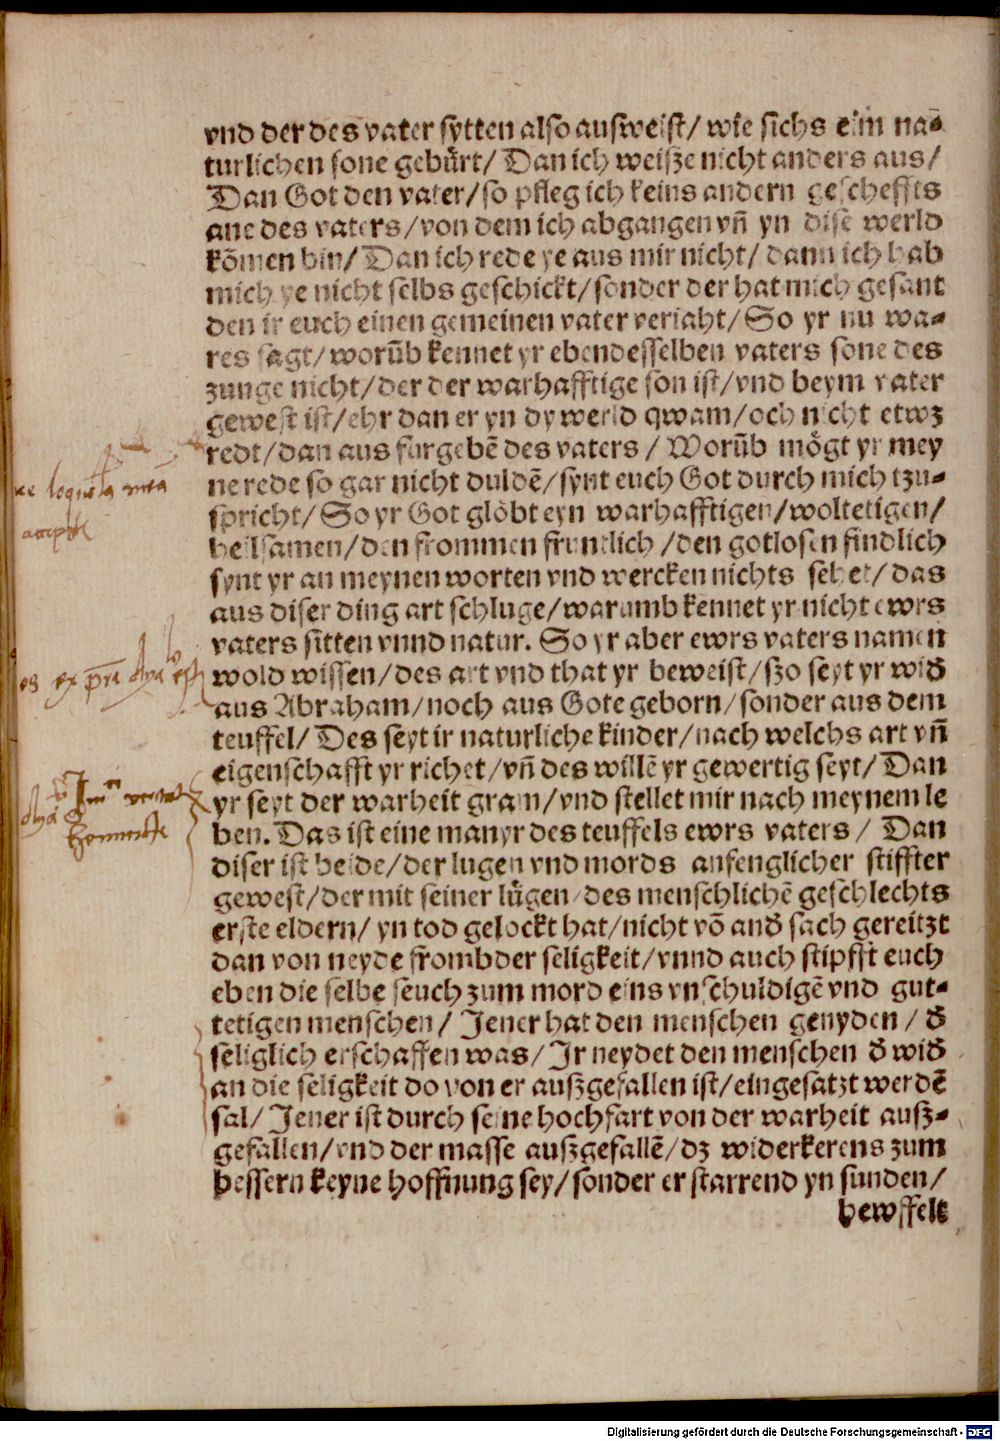 vnd der des vater sytten also ausweist/ wie sichs ein na⸗
turlichen sone gebuͤrt/ Dan ich weisze nicht anders aus/
Dan Got den vater/ so pfleg ich keins andern gescheffts
ane des vaters/ von dem ich abgangen vñ yn dise werld
kōmen bin/ Dan ich rede ye aus mir nicht/ dann ich hab
mich ye nicht selbs geschickt/ sonder der hat mich gesant
den ir euch einen gemeinen vater veriaht/ So yr nu wa⸗
res sagt/ worūb kennet yr ebendesselben vaters sone des
zunge nicht/ der der warhafftige son ist/ vnd beym vater
gewest ist/ ehr dan er yn dy werld qwam/ och nicht etwz
redt/ dan aus furgebē des vaters / Worūb moͤgt yr mey
ne rede so gar nicht duldē/ synt euch Got durch mich tzu⸗
spricht/ So yr Got gloͤbt eyn warhafftigen/ woltetigen/
heilsamen/ den frommen fruntlich /den gotlosen findlich
synt yr an meynen worten vnd wercken nichts sehet/ das
aus diser ding art schluge/ warumb kennet yr nicht ewrs
vaters sitten vnnd natur. So yr aber ewrs vaters namen
wold wissen/ des art vnd that yr beweist/ szo seyt yr wid̕
aus Abraham/ noch aus Gote geborn/ sonder aus dem
teuffel/ Des seyt ir naturliche kinder/ nach welchs art vñ
eigenschafft yr richet/ vñ des willē yr gewertig seyt/ Dan
yr seyt der warheit gram/ vnd stellet mir nach meynem le
ben. Das ist eine manyr des teuffels ewrs vaters / Dan
diser ist beide/ der lugen vnd mords anfenglicher stiffter
gewest/ der mit seiner luͤgen des menschlichē geschlechts
erste eldern/ yn tod gelockt hat/ nicht vō and̕ sach gereitzt
dan von neyde frombder seligkeit/ vnnd auch stipfft euch
eben die selbe seuch zum mord eins vnschuldigē vnd gut⸗
tetigen menschen/ Jener hat den menschen genyden / d̕
seliglich erschaffen was/ Jr neydet den menschen d̕ wid̕
an die seligkeit do von er auszgefallen ist/ eingesatzt werdē
sal/ Jener ist durch seine hochfart von der warheit ausz⸗
gefallen/ vnd der masse auszgefallē/ dz widerkerens zum
bessern keyne hoffnung sey/ sonder er starrend yn sunden/
bewffelt
loquela mea
Digitalisierung gefördert durch die Deutsche Forschungsgemeinschaft - DFG